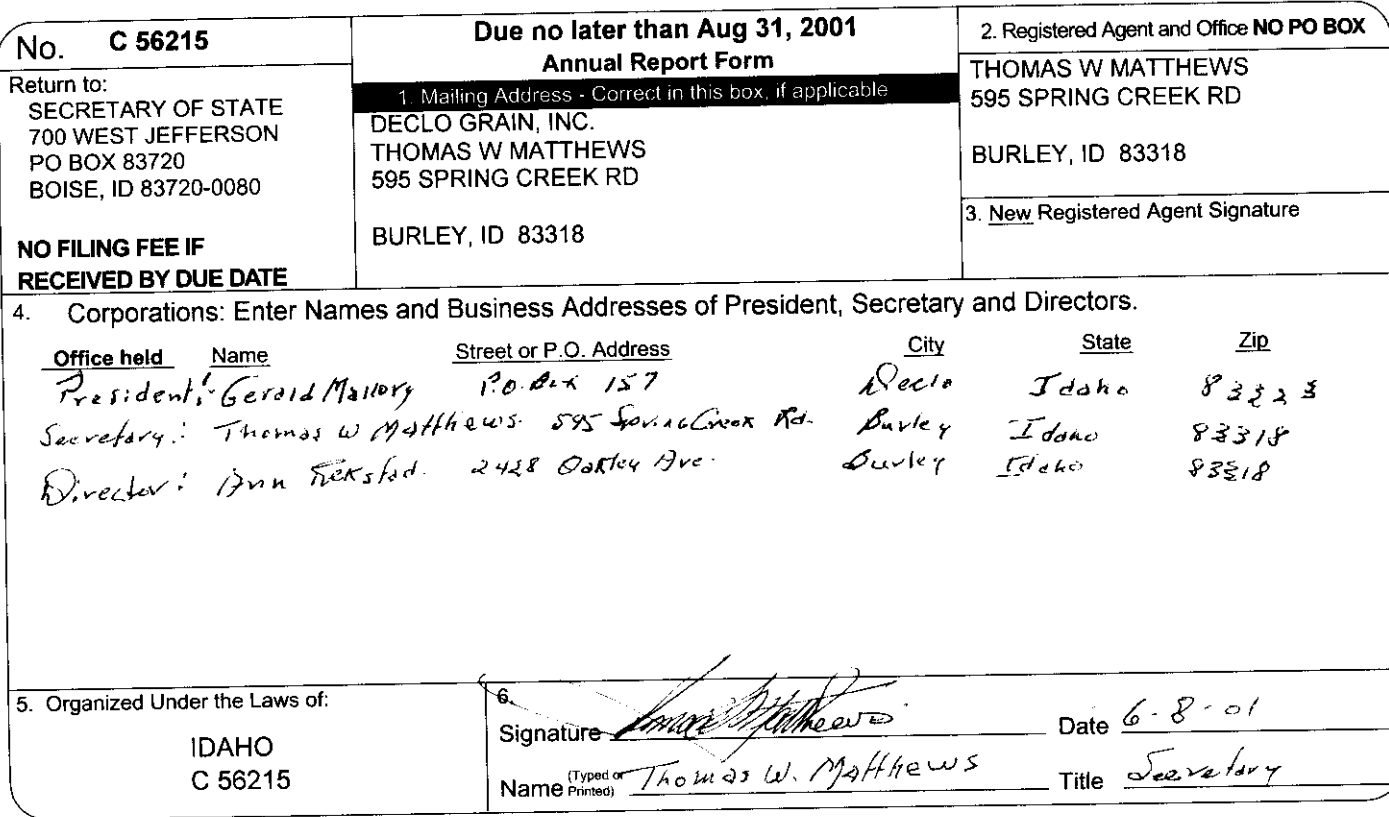 No. C 56215
Return to:
SECRETARY OF STATE
700 WEST JEFFERSON
PO BOX 83720
BOISE, ID 83720-0080
NO FILING FEE IF
RECEIVED BY DUE DATE
Due no later than Aug 31, 2001
Annual Report Form
1. Mailing Address - Correct in this box, if applicable
DECLO GRAIN, INC.
THOMAS W MATTHEWS
595 SPRING CREEK RD
BURLEY, ID 83318
2. Registered Agent and Office NO PO BOX
THOMAS W MATTHEWS
595 SPRING CREEK RD
BURLEY, ID 83318
3. New Registered Agent Signature
4. Corporations: Enter Names and Business Addresses of President, Secretary and Directors.
Office held Name Street or P.O. Address City State Zip
President: Gerald Mallory P.O. Box 157 Declo Idaho 83323
Secretary: Thomas W Matthews. 595 Spring Creek Rd. Burley Idaho 83318
Director: Ann 2428 Oakley Ave. Burley Idaho 83318
5. Organized Under the Laws of:
IDAHO
C 56215
6.
Signature Thomas W Matthews Date 6-8-01
Name (Typed or Printed) Thomas W. Matthews Title Secretary